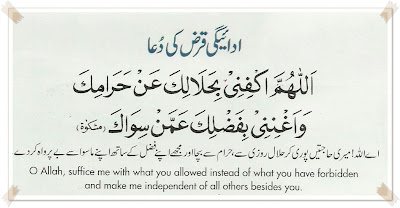 ادائیگی قرض کی دُعا
اَللّٰهُمَّ اكْفِنِيْ بِحَلَالِكَ عَنْ حَرَامِكَ
وَاَغْنِنِيْ بِفَضْلِكَ عَمَّنْ سِوَاكَ (مشکوٰۃ)
اے اللہ! میری حاجتیں پوری کر حلال روزی سے، حرام سے بچا اور مجھے اپنے فضل کے ساتھ اپنے ماسوا سے بے پرواہ کر دے
O Allah, suffice me with what you allowed instead of what you have forbidden
and make me independent of all others besides you.